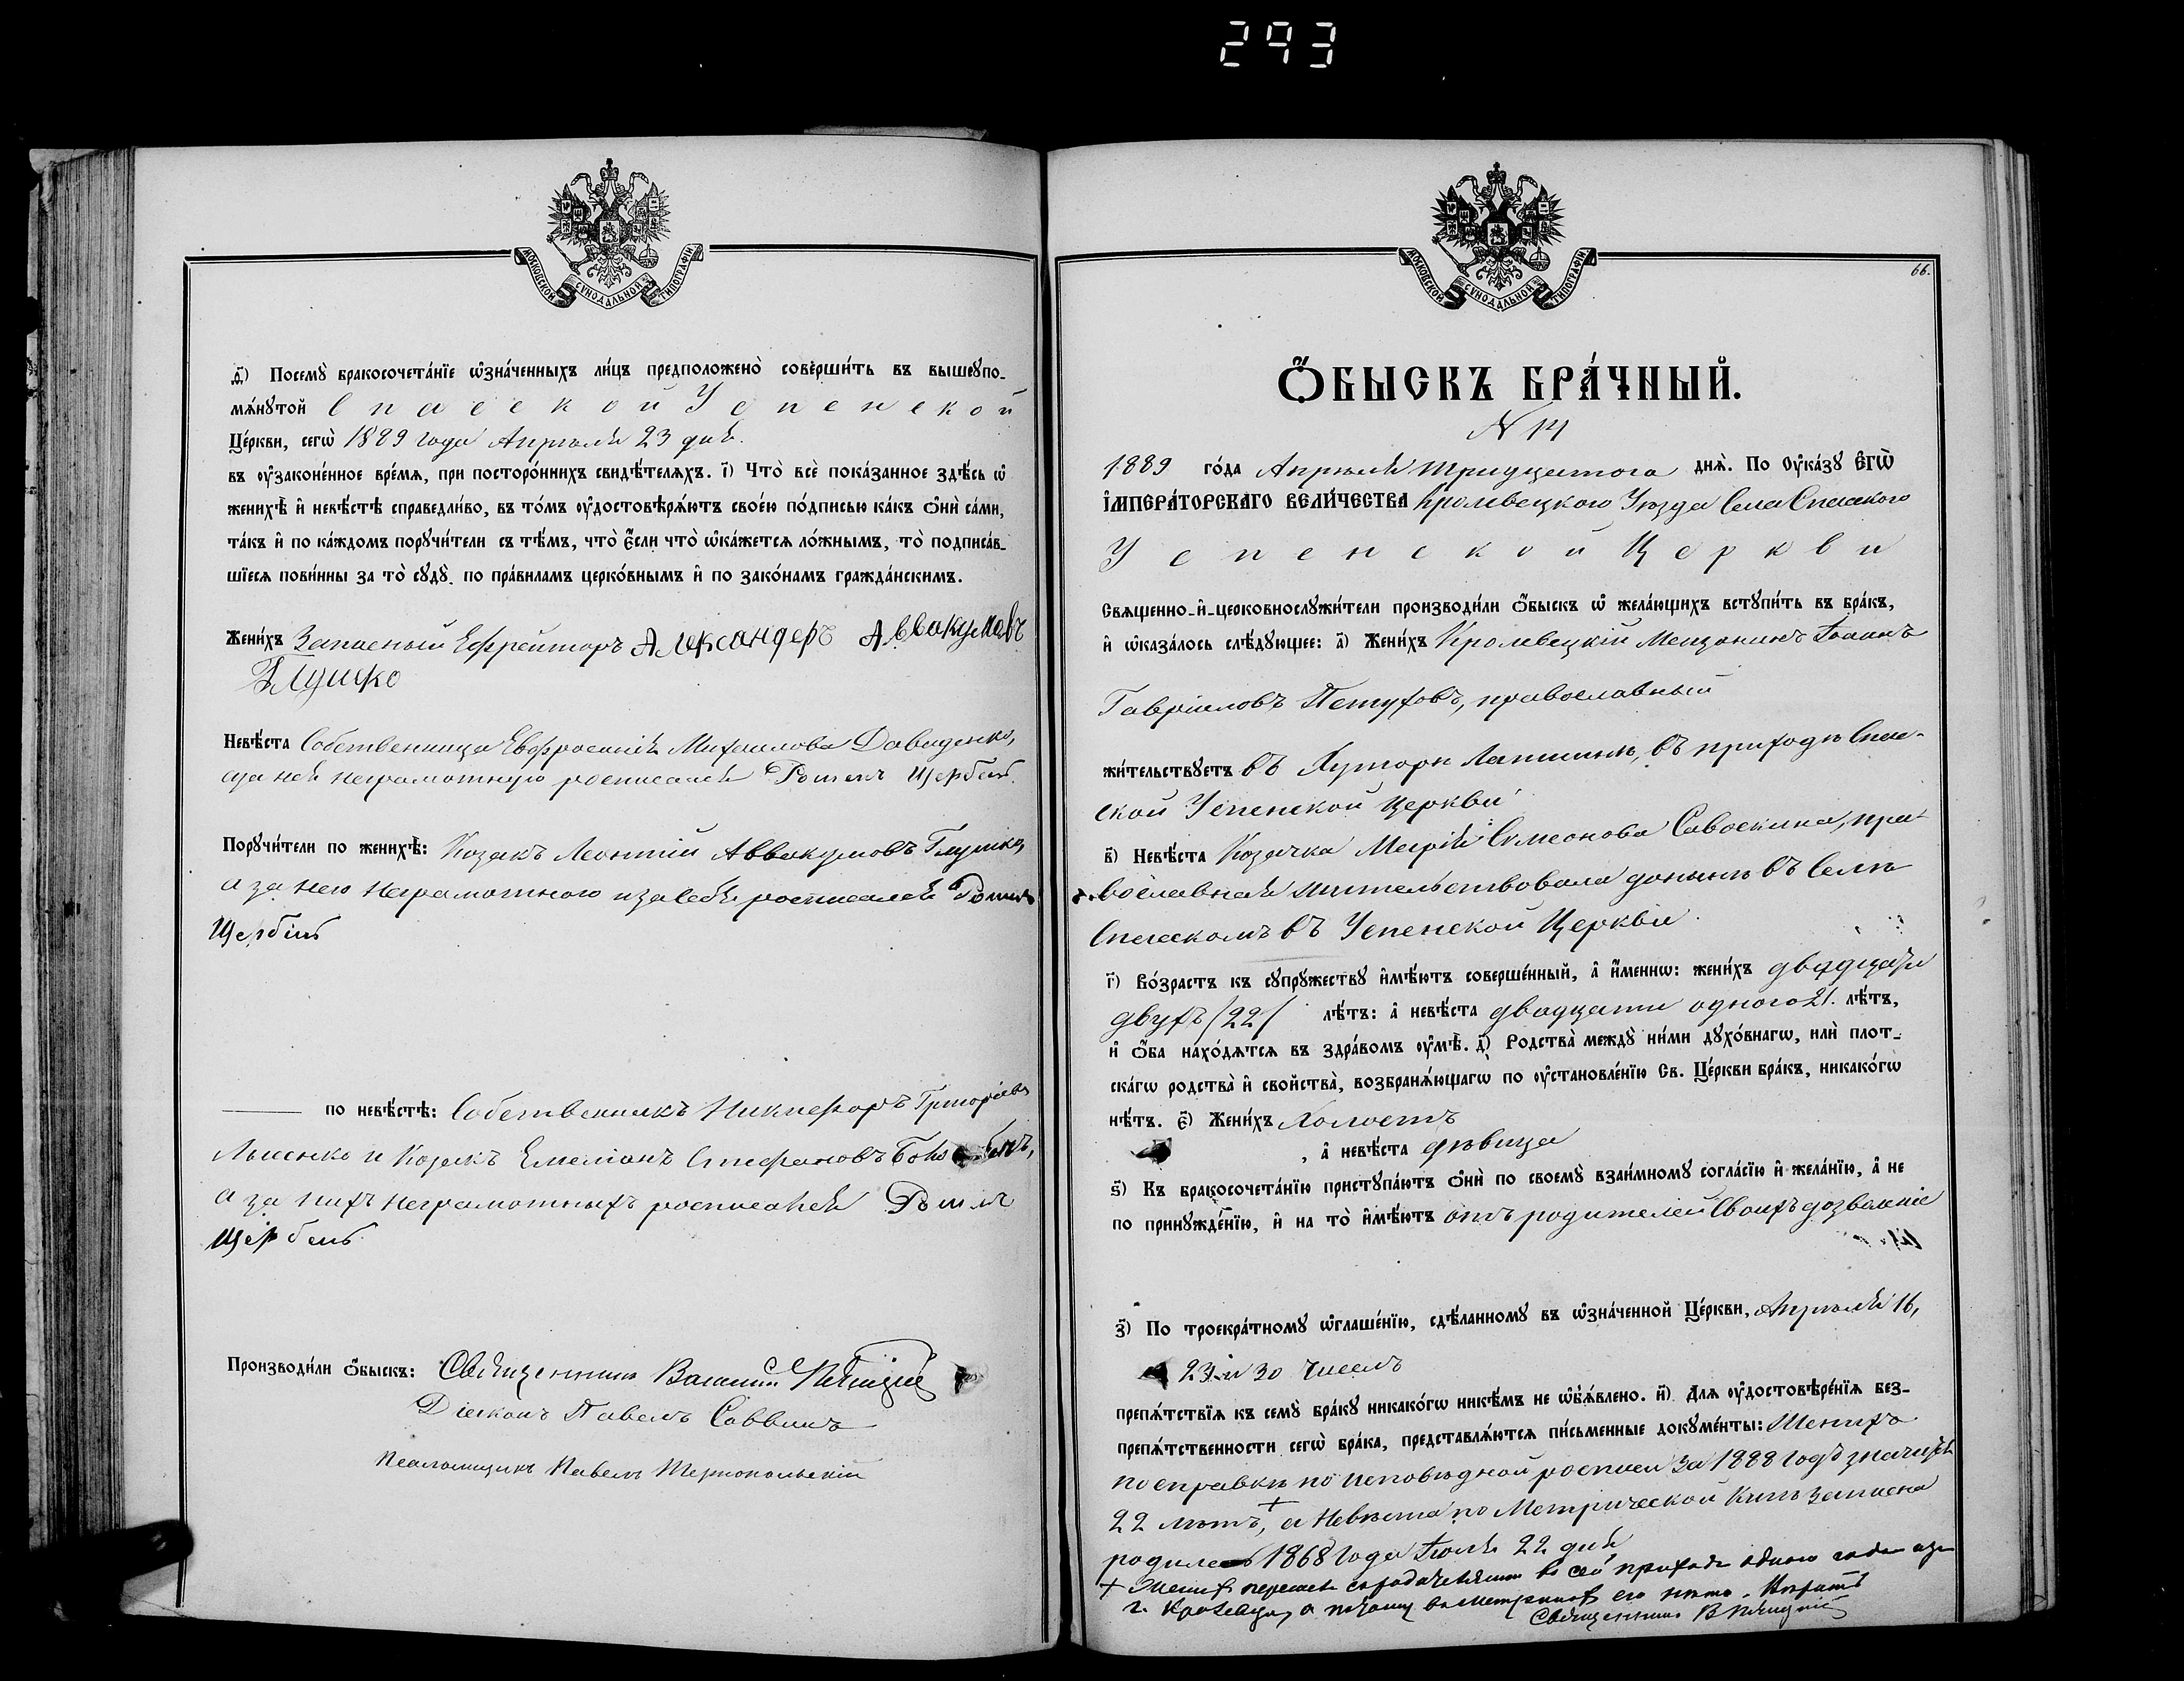 293
МОСКОВСКОЙ СѴНОДАЛЬНОЙ ТИПОГРАФІИ
д҃) Посемꙋ̀ бракосочета́нїе ѡ҆зна́ченныхъ ли́цъ предположено̀ соверши́ть въ вышеꙋпо-
мѧ́нꙋтой Спасской Успенской
Це́ркви, сегѡ̀ 1889 года Апрѣля 23 дня.
въ ᲂу҆законе́нное вре́мѧ, при посторо́ннихъ свидѣ́телѧхъ. і҃) Что̀ всѐ пока́занное здѣ́сь ѡ҆
женихѣ̀ и҆ невѣ́стѣ справедли́во, въ то́мъ ᲂу҆достовѣрѧ́ютъ свое́ю по́дписью ка́къ ѻ҆нѝ са́ми,
та́къ и҆ по ка́ждомъ порꙋчи́тели съ тѣ́мъ, что̀ є҆́сли что̀ ѡ҆ка́жетсѧ ло́жнымъ, то̀ подписа́в-
шїесѧ пови́нны за то̀ сꙋдꙋ̀ по пра́виламъ церко́внымъ и҆ по зако́намъ гражда́нскимъ.
Жени́хъ Запасный Ефрейторъ Александеръ Аввакумовъ
Глушко
Невѣ́ста Собственница Евфросинія Михаилова Давиденко,
за ней неграмотную росписался
Порꙋчи́тели по женихѣ̀: Козакъ Леонтій Аввакумовъ Глушко,
а за него неграмотного и за себя росписался
по невѣ́стѣ: Собственникъ Никифоръ Григоріевъ
Лысенко и Козакъ Емеліанъ Стефановъ
а за нихъ неграмотныхъ росписался
Производи́ли ѻ҆́быскъ: Священникъ Василій
Діаконъ Павелъ Саввинъ
Псаломщикъ Павелъ Тернопольскій
66.
МОСКОВСКОЙ СѴНОДАЛЬНОЙ ТИПОГРАФІИ
Ѻ҆́БЫСКЪ БРА́ЧНЫЙ.
N 14
1889 го́да Апрѣля тридцатого днѧ̀. По Оу҆ка́зꙋ Є҆ГѠ̀
І҆МПЕРА́ТОРСКАГО ВЕЛИ́ЧЕСТВА Кролевецкого Уѣзда Села Спасского
Успенской Церкви
Свѧщенно-и҆-церковнослꙋжи́тели производи́ли ѻ҆́быскъ ѡ҆ жела́ющихъ встꙋпи́ть въ бра́къ,
и҆ ѡ҆каза́лось слѣ́дꙋющее: а҃) Жени́хъ Кролевецкій Мещанинъ Іоаннъ
Гавріиловъ Петуховъ, православный
жи́тельствꙋетъ въ Хуторѣ Лапшинѣ, въ приходѣ Спас-
ской Успенской Церкви
в҃) Невѣ́ста Козачка Марія Симеонова Савоскина, пра-
вославная жительствовала донынѣ въ Селѣ
Спасскомъ въ Успенской Церкви.
г҃) Во́зрастъ къ сꙋпрꙋ́жествꙋ и҆мѣ́ютъ соверше́нный, а҆ и҆́меннѡ: жени́хъ двадцати
двухъ /22/ лѣ́тъ: а҆ невѣ́ста двадцати одного 21. лѣ́тъ,
и҆ ѻ҆́ба нахо́дѧтсѧ въ здра́вомъ ᲂу҆мѣ̀. д҃) Родства̀ междꙋ̀ ни́ми дꙋхо́внагѡ, илѝ плот-
ска́гѡ родства̀ и҆ свойства̀, возбранѧ́ющагѡ по ᲂу҆становле́нїю Св. Це́ркви бра́къ, никако́гѡ
нѣ́тъ. є҃) Жени́хъ Холостъ
, а҆ невѣ́ста дѣвица
ѕ҃) Къ бракосочета́нїю пристꙋпа́ютъ ѻ҆нѝ по своемꙋ̀ взаи́мномꙋ согла́сїю и҆ жела́нїю, а҆ не
по принꙋжде́нїю, и҆ на то̀ и҆мѣ́ютъ отъ родителей своихъ дозволеніе
з҃) По троекра́тномꙋ ѡ҆глаше́нїю, сдѣ́ланномꙋ въ ѡ҆зна́ченной Це́ркви, Апрѣля 16,
23 и 30 чиселъ
препѧ́тствїѧ къ семꙋ̀ бра́кꙋ никако́гѡ никѣ́мъ не ѡ҆б̾ѧ́влено. и҃) Длѧ ᲂу҆достовѣре́нїѧ без-
препѧ́тственности сегѡ̀ бра́ка, представлѧ́ютсѧ пи́сьменные докꙋме́нты: Женихъ
по справкѣ по исповѣдной росписи за 1888 годъ значится
22 лѣтъ, + а Невѣста по Метрической Книгѣ записана
родилась 1868 года Іюля 22 дня
+ Женихъ въ сей приходъ одного года изъ
г. Кролевца, а потому въ метрикахъ его нѣтъ.
Священникъ В.